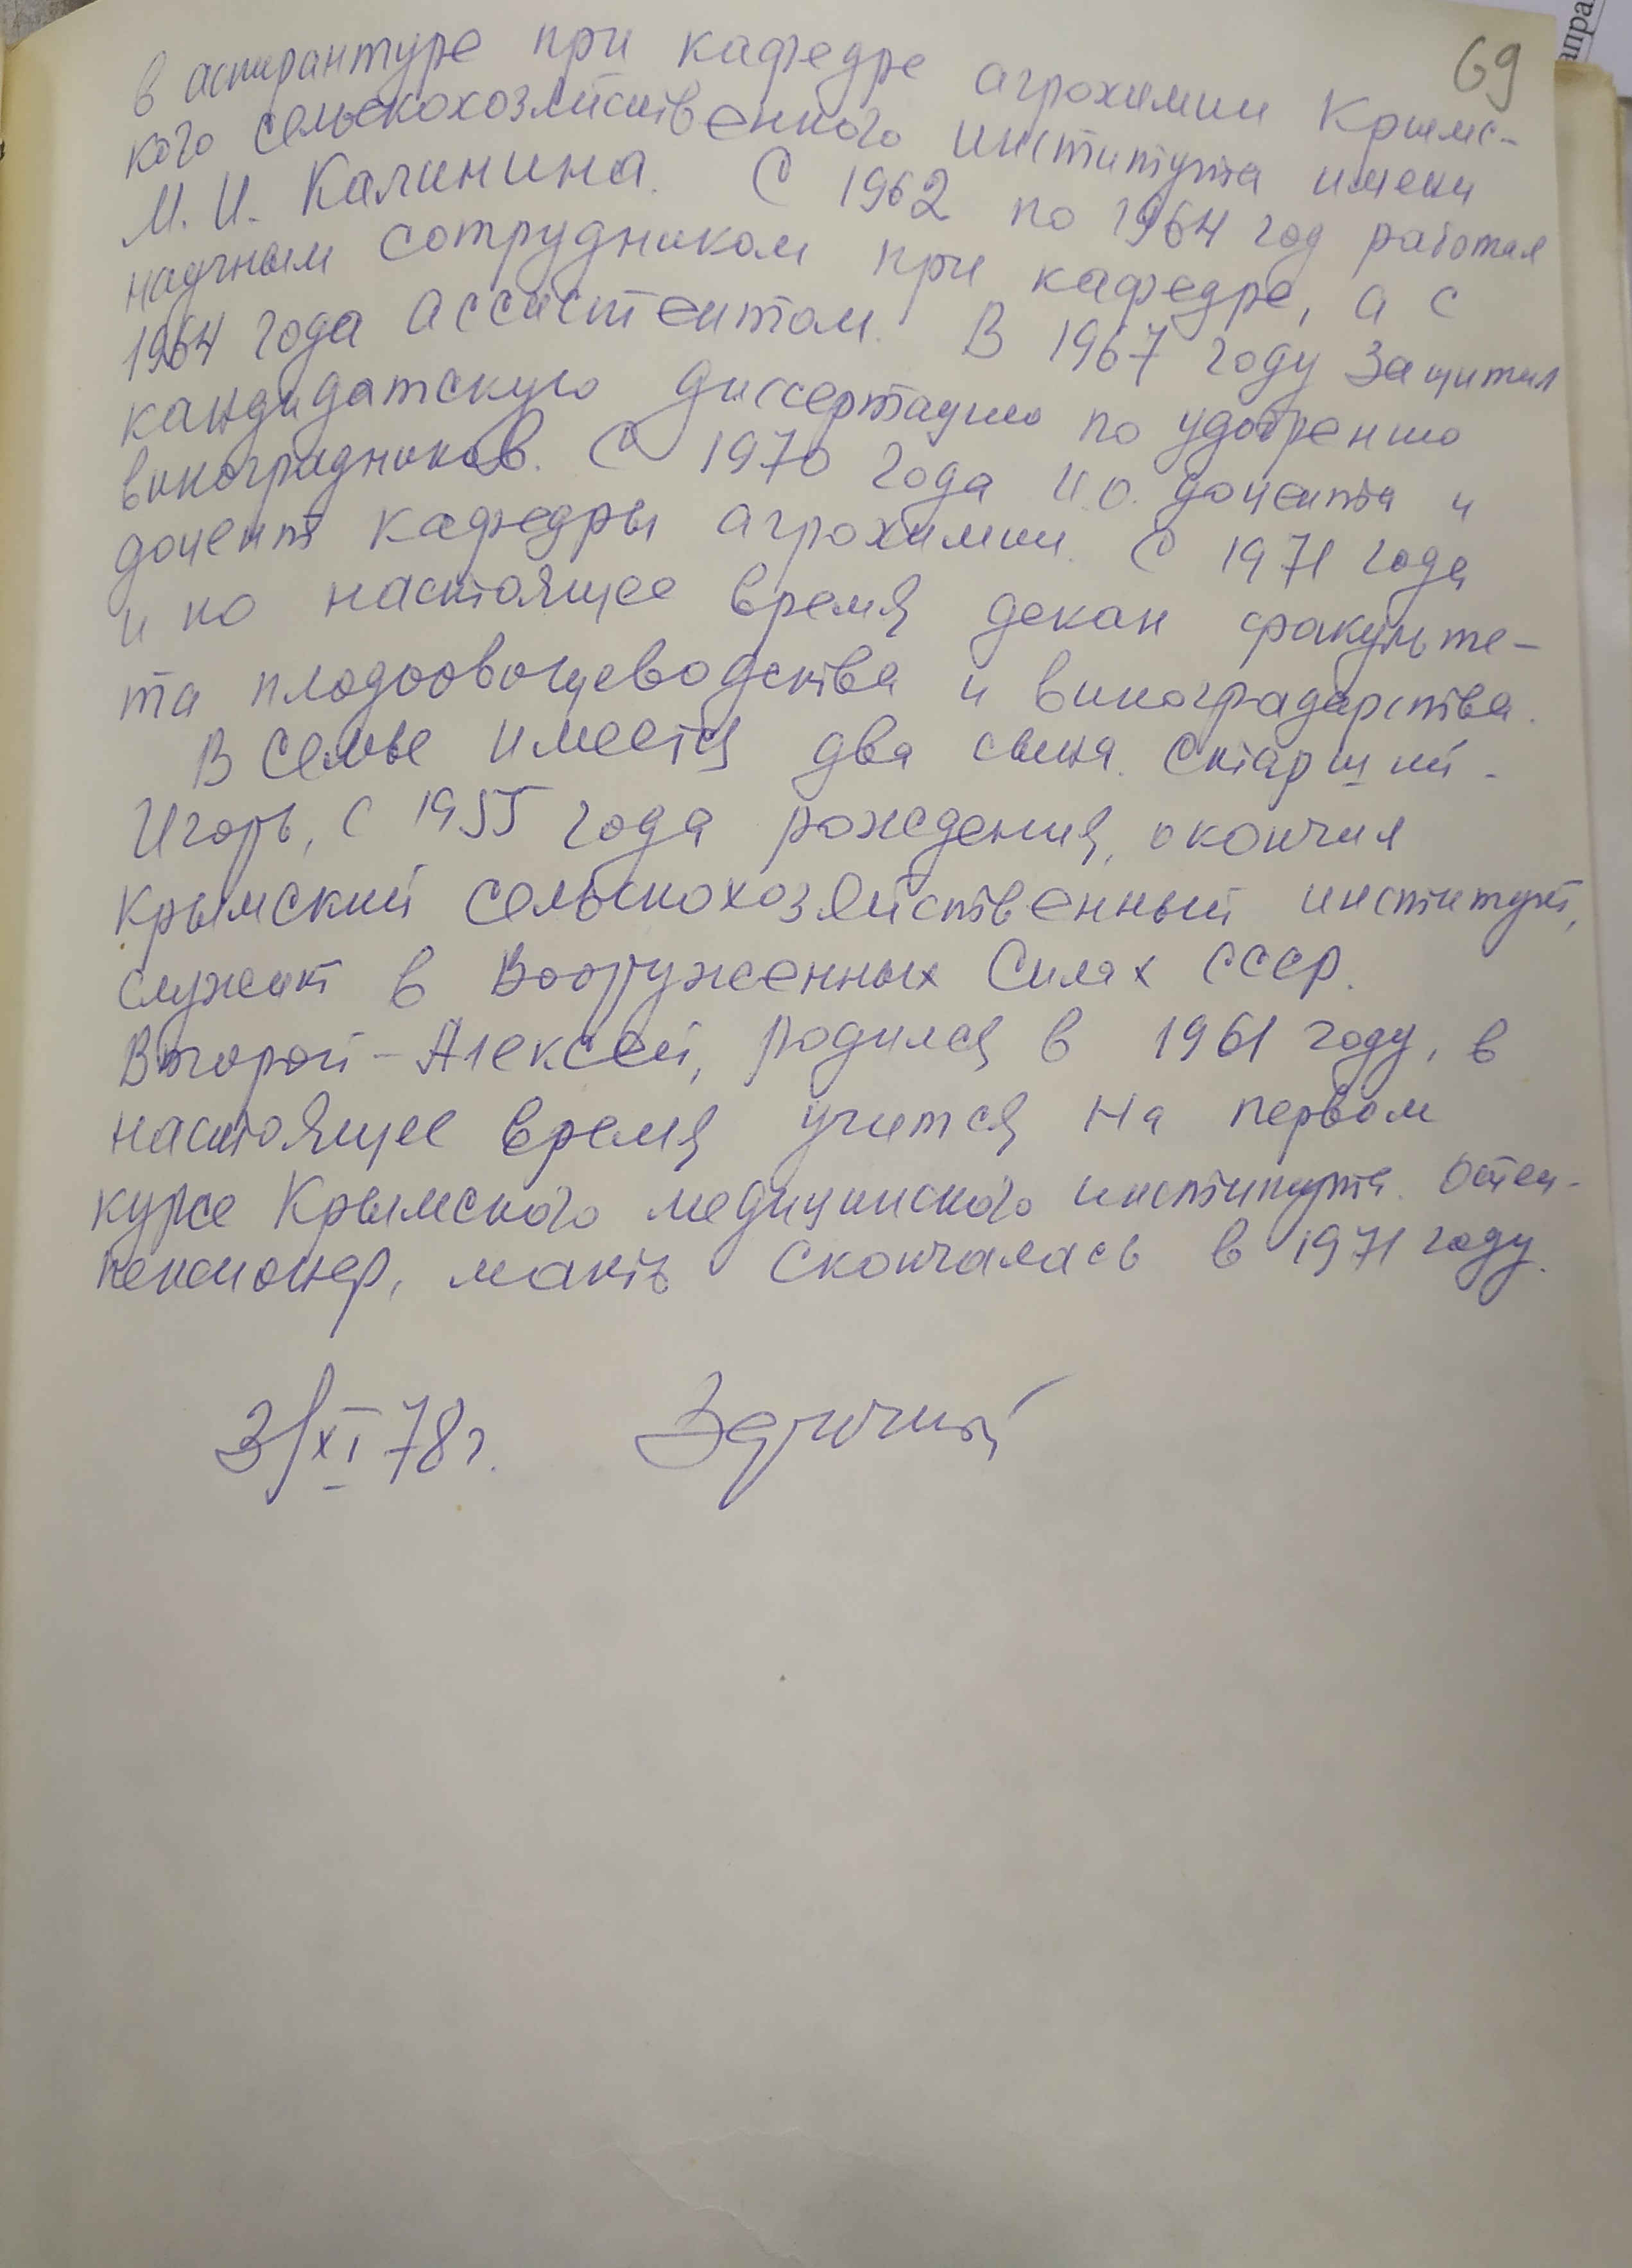 69
в аспирантуре при кафедре агрохимии Крымс-
кого сельскохозяйственного института имени
М. И. Калинина. С 1962 по 1964 год работал
научным сотрудником при кафедре, а с
1964 года ассистентом. В 1967 году защитил
кандидатскую диссертацию по удобрению
виноградников. С 1970 года и.о. доцента и
доцент кафедры агрохимии. С 1971 года
и по настоящее время декан факульте-
та плодоовощеводства и виноградарства.
В семье имеется два сына. Старший -
Игорь, с 1955 года рождения, окончил
Крымский сельскохозяйственный институт,
служит в Вооруженных Силах СССР.
Второй - Алексей, родился в 1961 году, в
настоящее время учится на первом
курсе Крымского медицинского института. Отец -
пенсионер, мать скончалась в 1971 году.
3/XI 78 г.